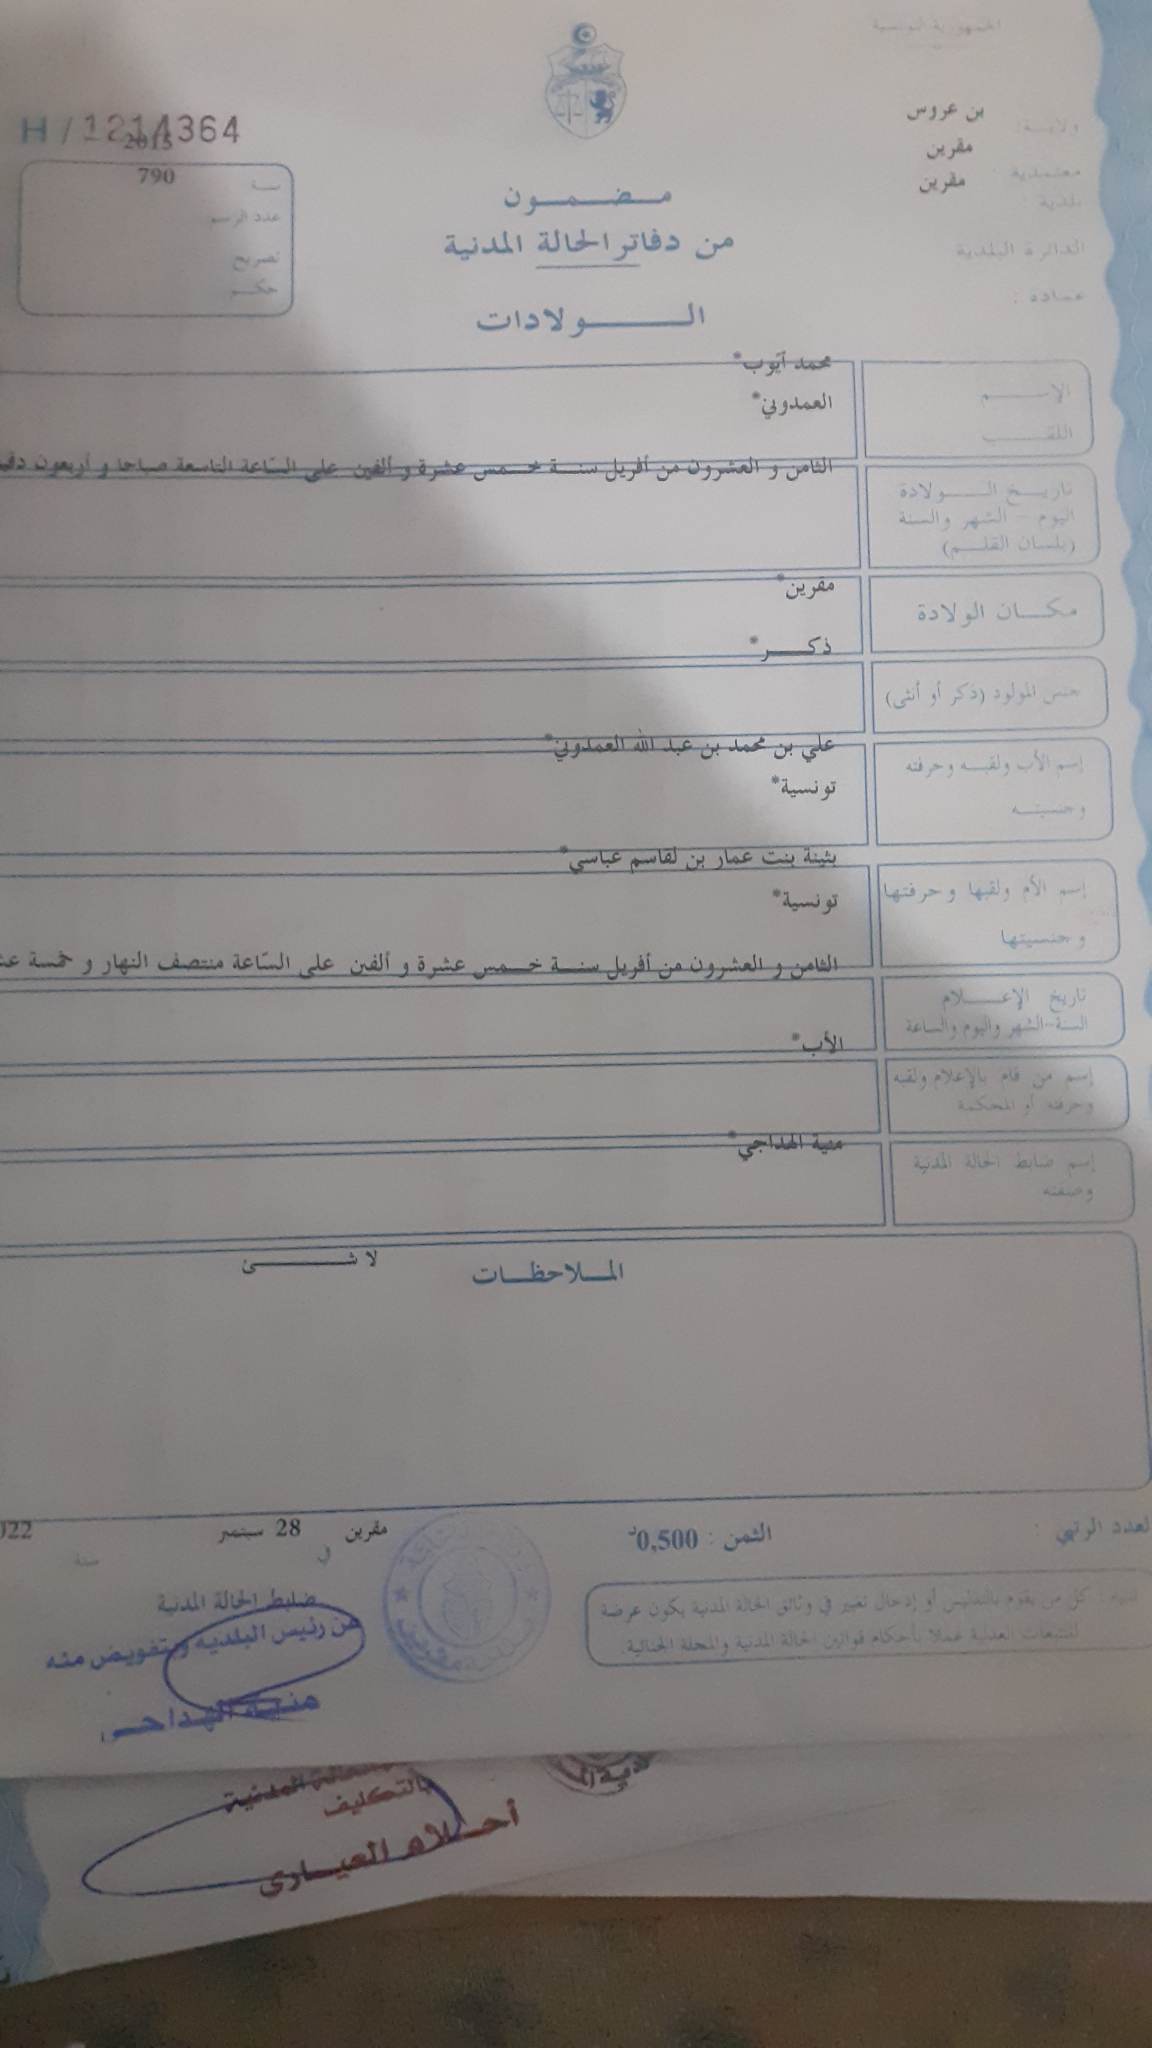 الجمهورية التونسية
ولاية: بن عروس
معتمدية: مقرين
بلدية: مقرين
الدائرة البلدية
عمادة:
H / 1214364
2015
سنة 790
عدد الرسم
تصريح
حكم
مضمون
من دفاتر الحالة المدنية
الولادات
الإسم محمد آيوب*
اللقب العمدوني*
الثامن و العشرون من أفريل سنة خمس عشرة و ألفين على السّاعة التاسعة صباحا و أربعون
تاريخ الولادة
اليوم - الشهر والسنة
(بلسان القلم)
مقرين*
مكان الولادة
ذكر*
جنس المولود (ذكر أو أنثى)
علي بن محمد بن عبد الله العمدوني*
إسم الأب ولقبه وحرفته
تونسية*
وجنسيته
بثينة بنت عمار بن لقاسم عباسي*
إسم الأم ولقبها وحرفتها
تونسية*
وجنسيتها
الثامن و العشرون من أفريل سنة خمس عشرة و ألفين على السّاعة منتصف النهار و خمسة
تاريخ الإعلام
السنة-الشهر واليوم والساعة
الأب*
إسم من قام بالإعلام ولقبه
وحرفته أو المحكمة
منية الهداجي*
إسم ضابط الحالة المدنية
وصفته
الملاحظات لا شئ
العدد الرتبي :
الثمن : 0,500د
مقرين في 28 سبتمبر سنة
تنبيه : كل من يقوم بالتدليس أو إدخال تغيير في وثائق الحالة المدنية يكون عرضة
للتتبعات العدلية عملا بأحكام قوانين الحالة المدنية والمجلة الجنائية.
ضابط الحالة المدنية
عن رئيس البلدية وبتفويض منه
منية الهداجي
الحالة المدنية
بالتكليف
أحلام العياري